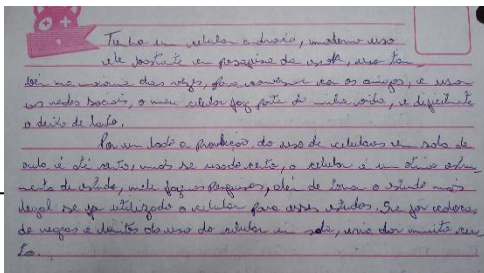 Tenho um celular android, moderno uso
ele bastante em pesquisa da escola, uso tam-
bém na maioria das vezes, para conversar com os amigos, e usar
as redes sociais, o meu celular faz parte da minha vida, e dificilmente
o deixo de lado.
Por um lado a proibição do uso de celulares em sala de
aula é até certo, mas se usado certo, o celular é um ótimo instru-
mento de estudo, nele faço as pesquisas, além de tornar o estudo mais
legal se for utilizado o celular para esses estudos. Se for
de regras e limites do uso do celular em sala, iria dar muito cer-
to.